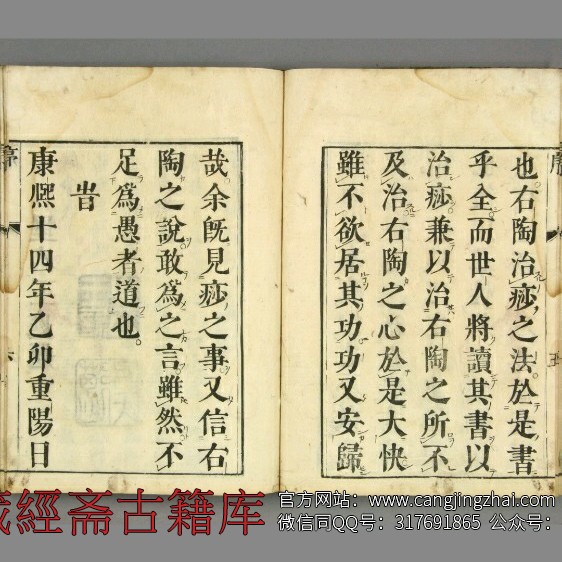 也右陶治痧之法於是書
乎全而世人將讀其書以
治痧兼以治右陶之所不
及治右陶之心於是大快
雖不欲居其功功又安歸
哉余旣見痧之事又信右
陶之說敢爲之言雖然不
足爲愚者道也
旹
康熙十四年乙卯重陽日
序
六
經斋古籍库
官方网站：www.cangjingzhai.com
微信同QQ号：317691865 公众号：